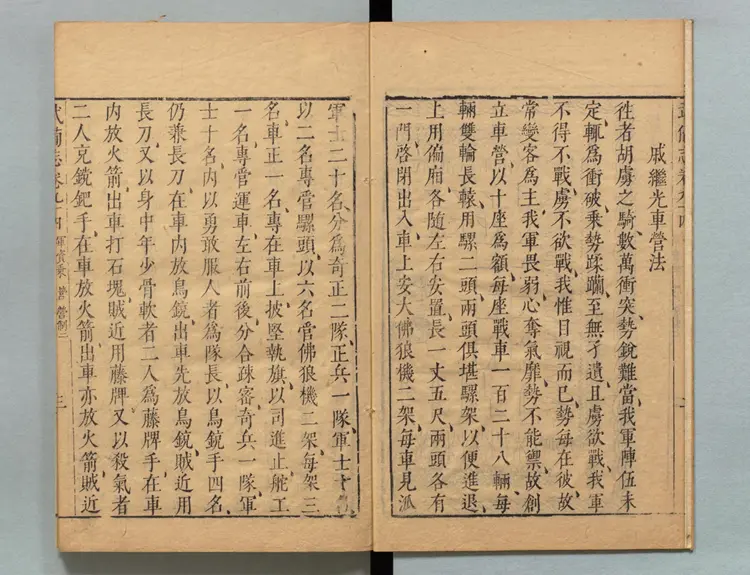 戚繼光車營法
徃者胡虜之騎數萬衝突勢銳難當我軍陣伍未
定輒爲衝破乘勢蹂躪至無孑遺且虜欲戰我軍
不得不戰虜不欲戰我惟目視而巳勢每在彼故
常變客爲主我軍畏弱心奪氣靡勢不能禦故創
立車營以十座爲額每座戰車一百二十八輛每
輛雙輪長轅用騾二頭兩頭俱堪騾架以便進退
上用偏廂各隨左右安置長一丈五尺兩頭各有
一門啓閉出入車上安大佛狼機二架每車見派
軍士二十名分爲奇正二隊正兵一隊軍士十
以二名專管騾頭以六名管佛狼機二架每架三
名車正一名專在車上披堅執旗以司進止舵工
一名專管運車左右前後分合疎密奇兵一隊軍
士十名内以勇敢服人者爲隊長以鳥銃手四名
仍兼長刀在車内放鳥銃出車先放鳥銃賊近用
長刀又以身中年少骨軟者二人爲藤牌手在車
内放火箭出車打石塊賊近用藤牌又以殺氣者
二人充鎲鈀手在車放火箭出車亦放火箭賊近
武備志卷九十四 軍資乘 營 營制二 三